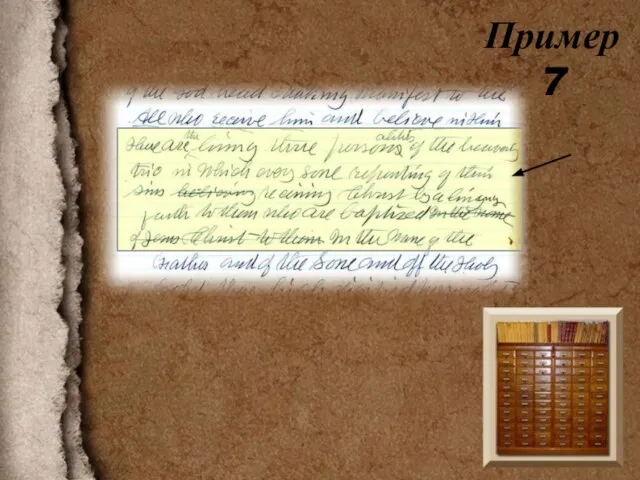 Пример
7
of the God head making manifest to the
All who receive him and believe in Him
the alities
have are living three persons of the heavenly
trio in which every sone repenting of their
sins believing receiving Christ by a living
faith to them who are baptized in the name
of Jesus Christ to them In the name of the
Father and of the Sone and off the Holy